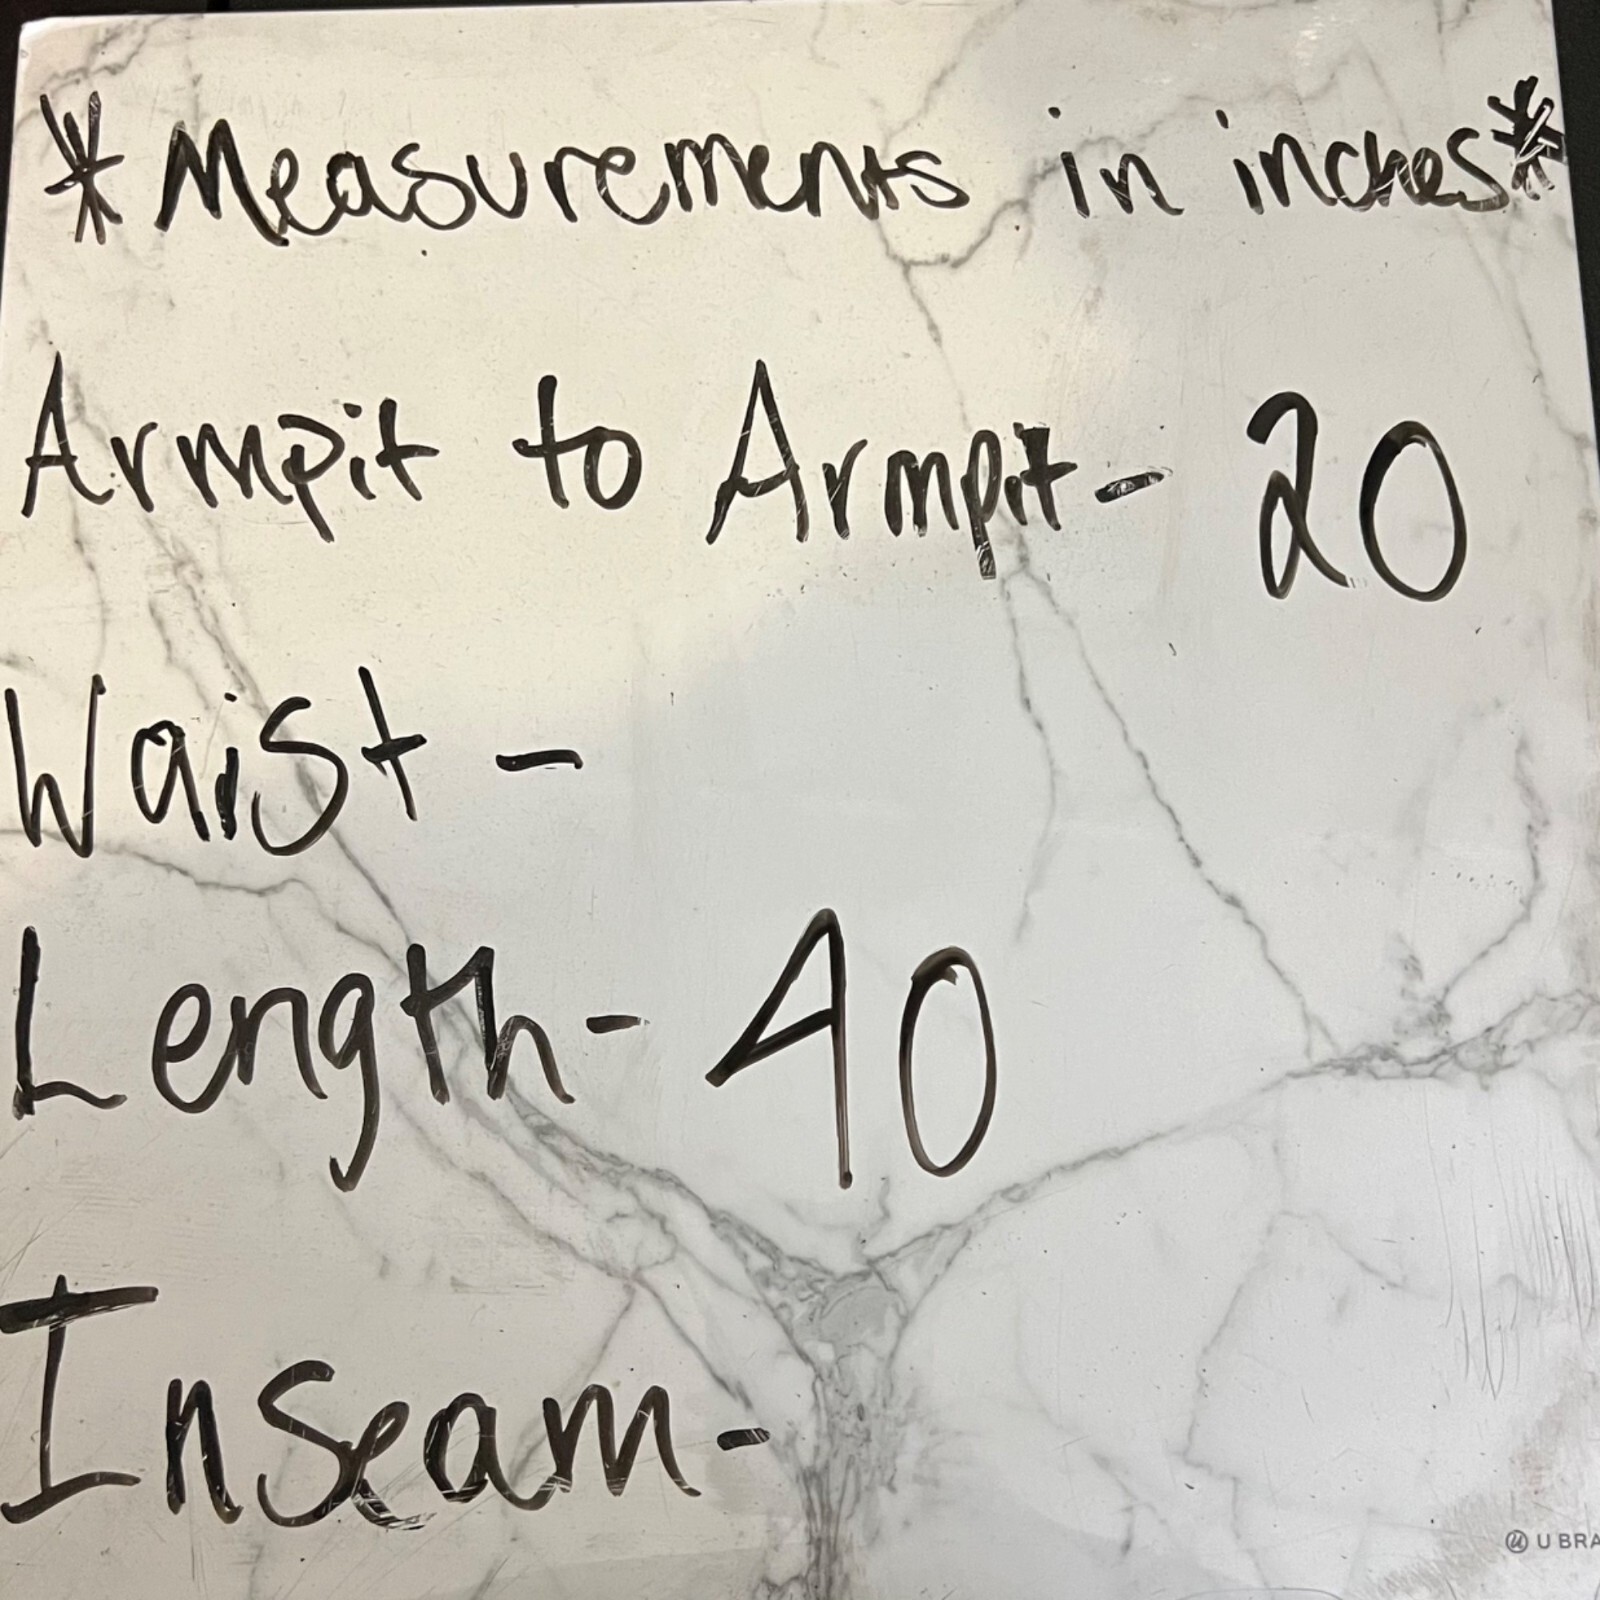 *Measurements in inches*
Armpit to Armpit- 20
Waist -
Length- 40
Inseam-
U BRA